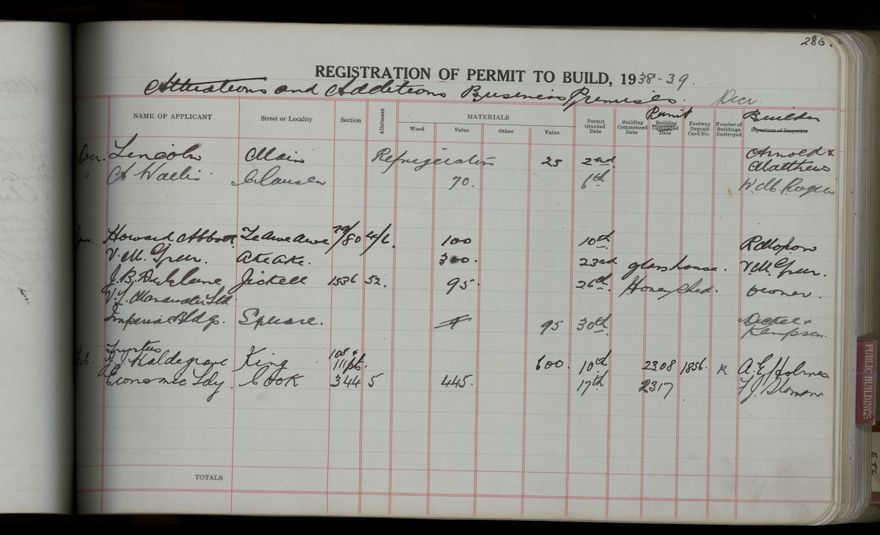 286.
REGISTRATION OF PERMIT TO BUILD, 1938-39.
Alterations and Additions Business Premises. Decr.
NAME OF APPLICANT Street or Locality Section Allotment MATERIALS Wood Value Other Value Permit Granted Date Building Commenced Date Permit Building Date Footway Deposit Card No. Number of Buildings Destroyed Builder Signature of Inspector
Decr. Lincoln Main Refrigeration 25 2nd Arnold & Matthews
" Wallis Clausen 70. 6th Rogers
Howard Abbott Te Awe Awe 79/80 4/6 100 10th
V. M. Greer. 300. 23rd glasshouse. V M Greer.
J. B. Jickell 1536 52. 95. 26th Honey Shed. owner.
Ltd
Imperial Bldg. Square. 95 30th
Trustees
Waldegrave King 108 & 111/6. 600. 10th 2308 1856. K A. E. Holmes
Economic Ldy Cook 344 5 445. 17th 2317 F J
TOTALS
PUBLIC BUILDINGS